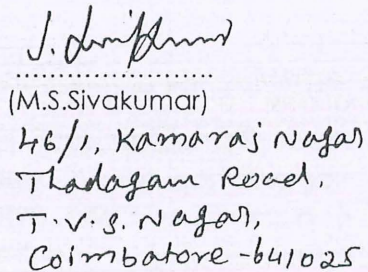 (M.S.Sivakumar)
46/1, Kamaraj Nagar
Thadagam Road,
T.V.S. Nagar,
Coimbatore -641025